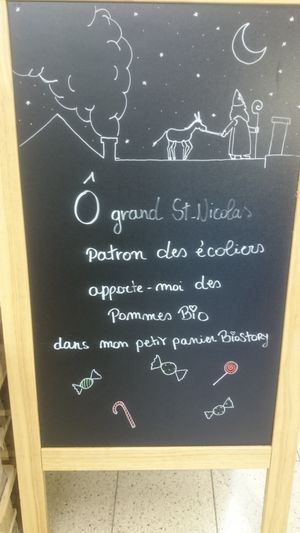 Ô grand St-Nicolas
Patron des écoliers
apporte-moi des
Pommes Bio
dans mon petit panier BioStory